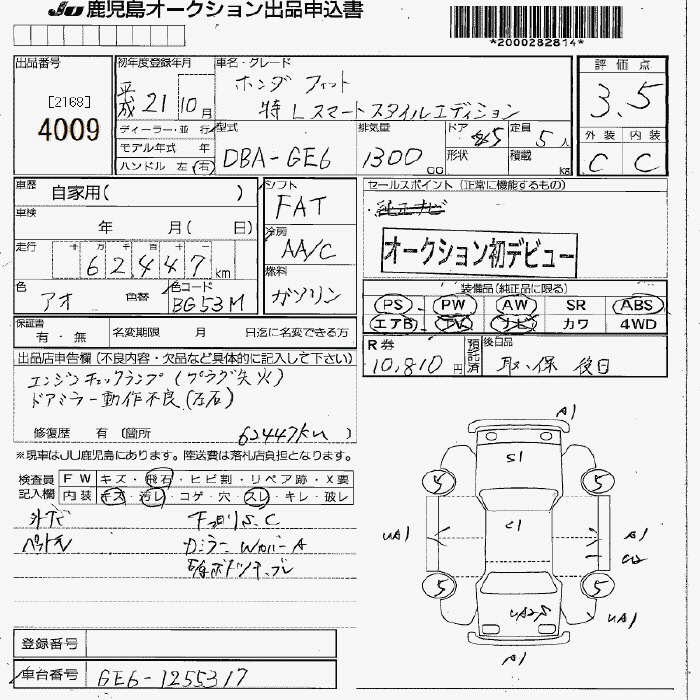 JU 鹿児島オークション出品申込書
*2000282814*
出品番号
[2168]
4009
初年度登録年月
平成 21 10 月
車名・グレード
ホンダ フィット
特 L スマートスタイルエディション
評価点
3.5
外装 内装
C C
ディーラー・並 行
モデル年式 年
ハンドル 左 右
型式
DBA-GE6
排気量
1300 CC
ドア 5
形状
定員 5 人
積載 kg
車歴
自家用( )
車検
年 月( 日)
走行
十 万 千 百 十 一
6 2 4 4 7 km
色
アオ
色替
色コード
BG53M
シフト
FAT
冷房
AA/C
燃料
ガソリン
セールスポイント (正常に機能するもの)
純正ナビ
オークション初デビュー
装備品(純正品に限る)
PS PW AW SR ABS
エアB TV ナビ カワ 4WD
保証書
有・無
名変期限 月 日迄に名変できる方
R券
10,810 円
預託済
後日品
取、保 後日
出品店申告欄 (不良内容・欠品など具体的に記入して下さい)
エンジンチェックランプ (プラグ失火)
ドアミラー動作不良(左右)
修復歴 有 (箇所 62447km )
※現車はJU鹿児島にあります。陸送費は落札店負担となります。
検査員記入欄
FW キズ・飛石・ヒビ割・リペア跡・X要
内装 キズ・汚レ・コゲ・穴・スレ・キレ・破レ
下回りS.C
A1
S1
5
5
C1
UA1
A1
5
5
UA1
A1
登録番号
車台番号
GE6-1255317